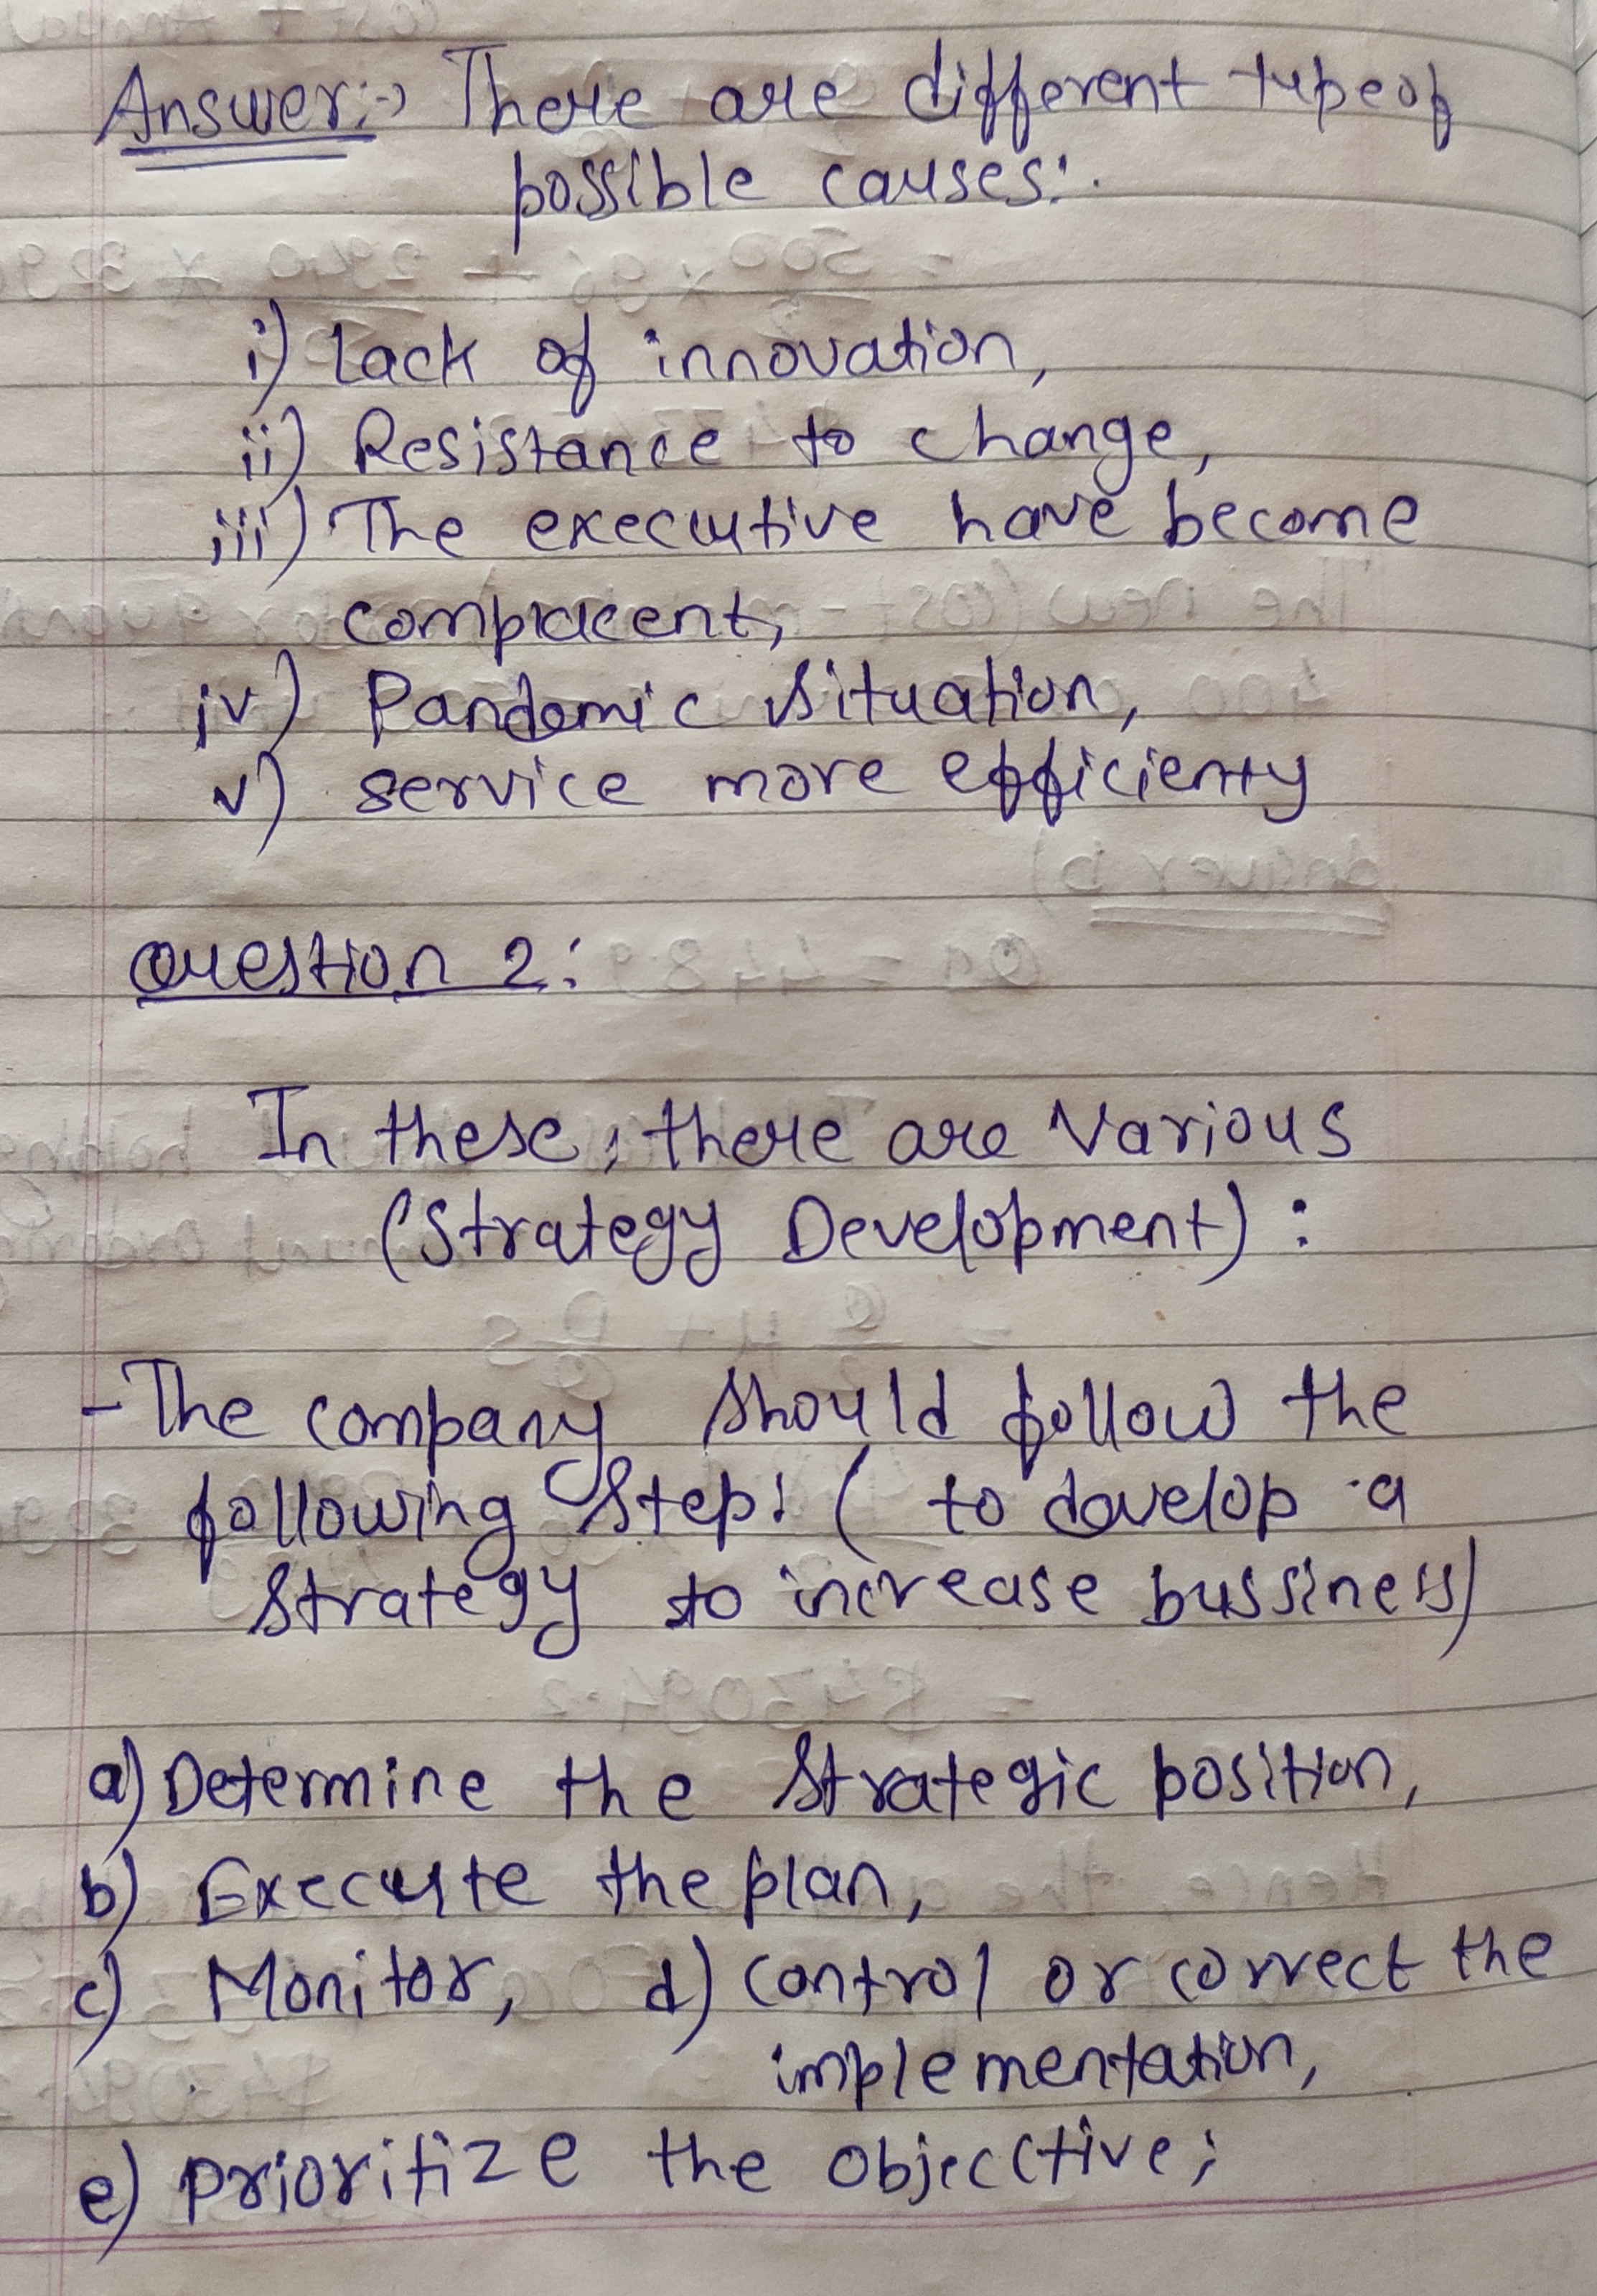 Answer:-> There are different type of
possible causes:.
i) Lack of innovation,
ii) Resistance to change,
iii) The executive have become
complacent,
iv) Pandemic situation,
v) service more efficienty
Question 2:
In these, there are Various
(Strategy Development) :
- The company should follow the
following step: ( to develop a
strategy to increase bussiness)
a) Determine the strategic position,
b) Execute the plan,
c) Monitor, d) control or correct the
implementation,
e) prioritize the objecctive;